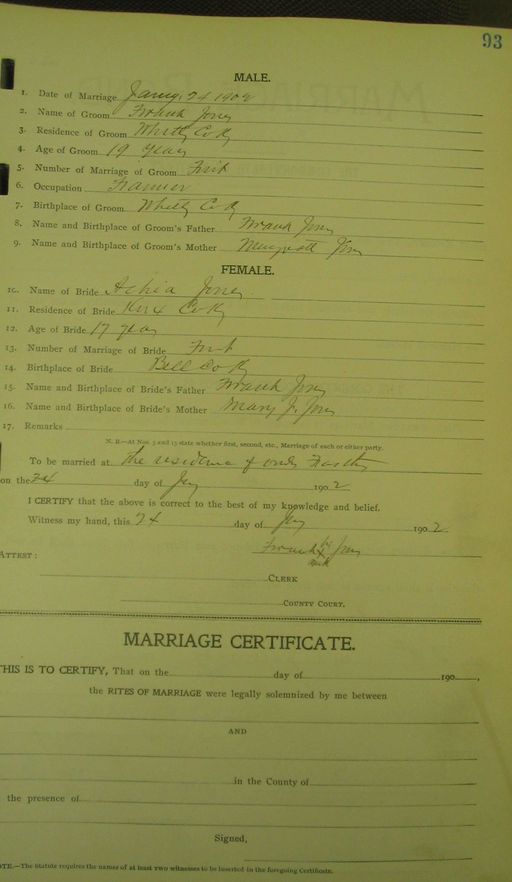 93
MALE.
1. Date of Marriage 24 1902
2. Name of Groom Frank Jones
3. Residence of Groom Whitley Co Ky
4. Age of Groom 19 years
5. Number of Marriage of Groom First
6. Occupation Farmer
7. Birthplace of Groom Whitley Co Ky
8. Name and Birthplace of Groom's Father Frank Jones
9. Name and Birthplace of Groom's Mother Jones
FEMALE.
10. Name of Bride Jones
11. Residence of Bride Knox Co Ky
12. Age of Bride 17 years
13. Number of Marriage of Bride First
14. Birthplace of Bride Bell Co Ky
15. Name and Birthplace of Bride's Father Frank Jones
16. Name and Birthplace of Bride's Mother Mary J. Jones
17. Remarks
N. B.—At Nos. 5 and 13 state whether first, second, etc., Marriage of each or either party.
To be married at the residence of
on the 24 day of Jany 1902
I CERTIFY that the above is correct to the best of my knowledge and belief.
Witness my hand, this 24 day of Jany 1902
Frank his x Jones
mark
ATTEST:
CLERK
COUNTY COURT.
MARRIAGE CERTIFICATE.
THIS IS TO CERTIFY, That on the day of 190 ,
the RITES OF MARRIAGE were legally solemnized by me between
AND
in the County of
the presence of
Signed,
NOTE.—The Statute requires the names of at least TWO witnesses to be inserted in the foregoing Certificate.